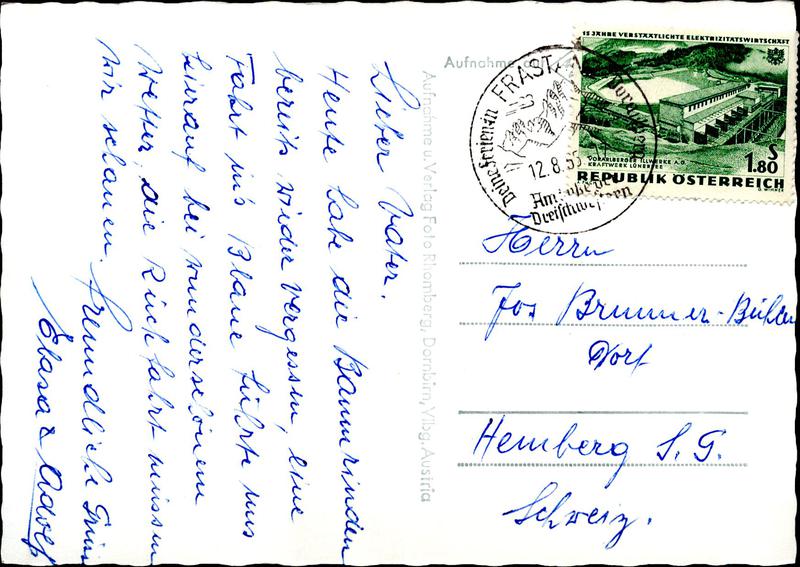 Lieber Vater.
Heute habe die Baumrinden
bereits wider vergessen, eine
Fahrt in's Blaue führte uns
hierauf bei wunderschönem
Wetter, die Rückfahrt müssen
wir schauen. Freundliche Grüsse
& Adolf
Aufnahme u. Verlag Foto Rhomberg, Dornbirn, Vlbg. Austria
Aufnahme
FRASTANZ
Vorarlberg
Deine Ferien an
12.8.63
Am Fuße der
Dreischwestern
15 JAHRE VERSTAATLICHTE ELEKTRIZITÄTSWIRTSCHAFT
VORARLBERGER ILLWERKE A.G.
KRAFTWERK LÜNERSEE
S
1.80
REPUBLIK ÖSTERREICH
Herrn
Jos Brunner-Bühler
Dorf
Hemberg S. G.
Schweiz.